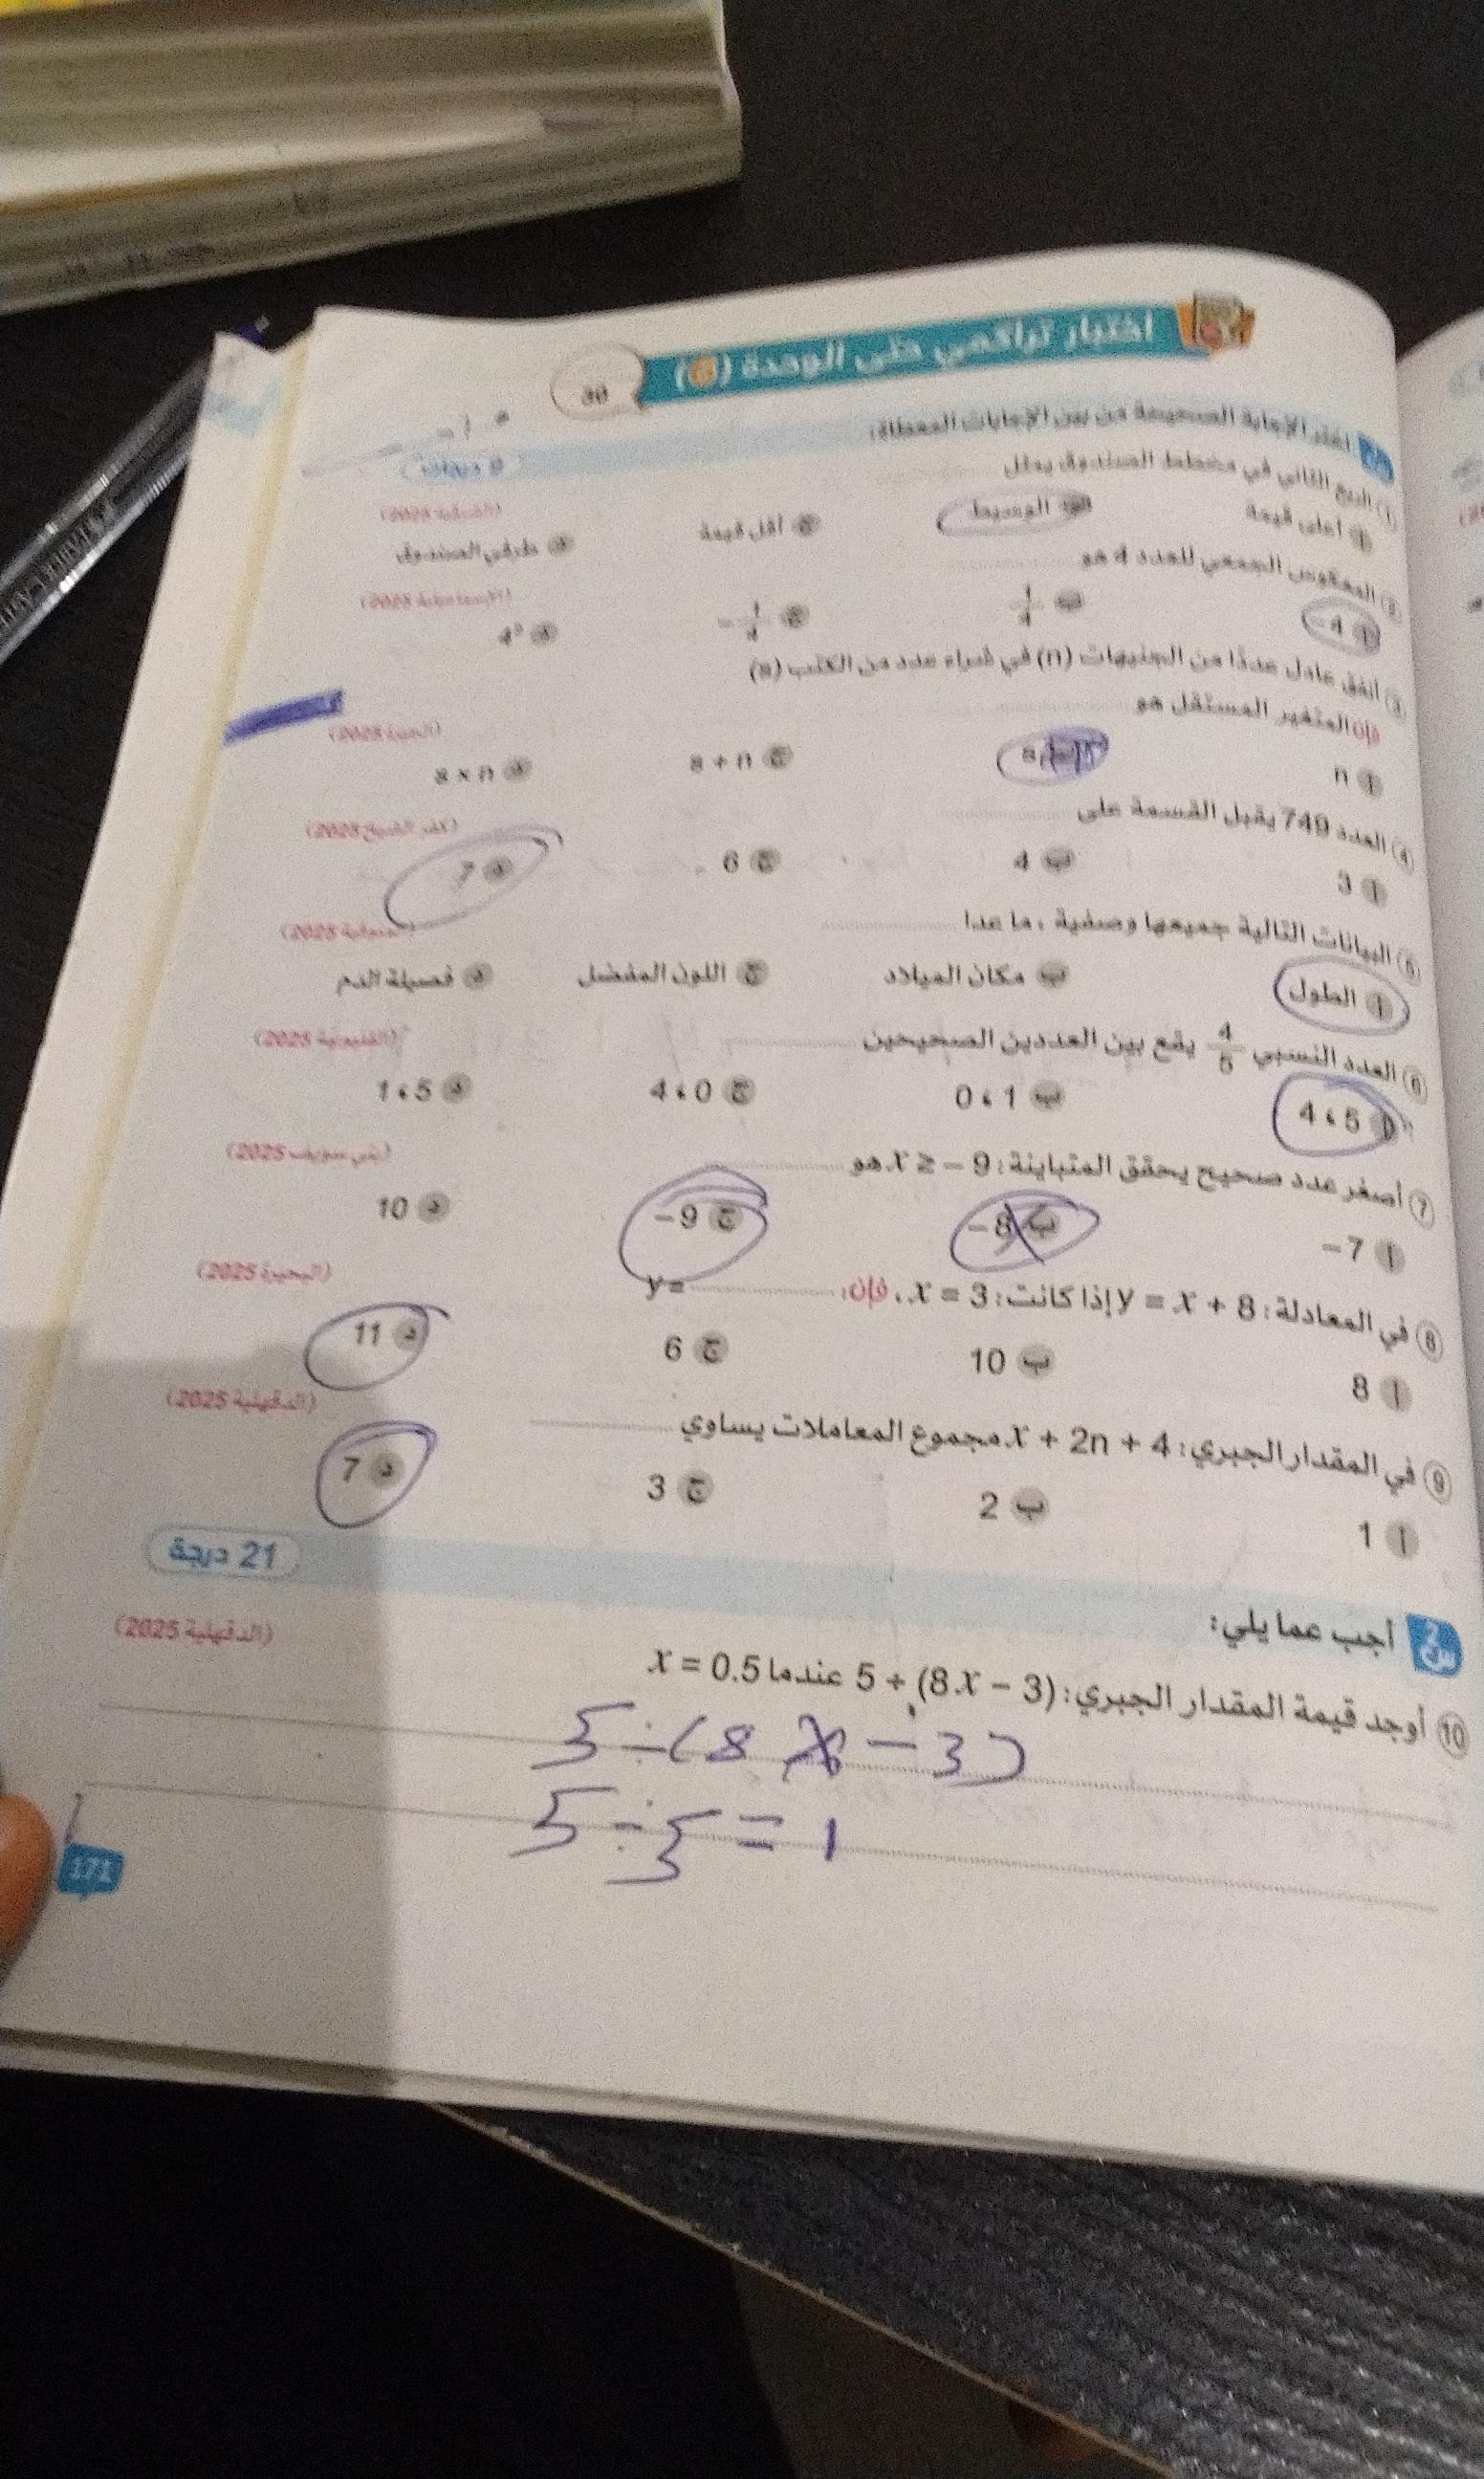 اختبار تراكمي على الوحدة
30
اختر الإجابة الصحيحة من بين الإجابات المعطاة:
9 درجات
① الربع الثاني في مخطط الصندوق يمثل
أ أعلى قيمة ب الوسيط ج أقل قيمة د طرفي الصندوق
② المعكوس الجمعي للعدد 4 هو
(الإسماعيلية 2025)
أ 4 − ب 1/4 ج 1/4 − د
③ أنفق عادل عددًا من الجنيهات (n) في شراء عدد من الكتب (s)
فإن المتغير المستقل هو
(الجيزة 2025)
أ n ب s ج s + n د s × n
④ العدد 749 يقبل القسمة على
(كفر الشيخ 2025)
أ 3 ب 4 ج 6 د 7
⑤ البيانات التالية جميعها وصفية ، ما عدا
(المنوفية 2025)
أ الطول ب مكان الميلاد ج اللون المفضل د فصيلة الدم
⑥ العدد النسبي 4/5 يقع بين العددين الصحيحين
(القليوبية 2025)
أ 4 ، 5 ب 0 ، 1 ج 4 ، 0 د 1 ، 5
⑦ أصغر عدد صحيح يحقق المتباينة : x ≥ − 9 هو
(بني سويف 2025)
أ 7 − ب 8 − ج 9 − د 10
⑧ في المعادلة : y = x + 8 إذا كانت : x = 3 ، فإن : y =
(البحيرة 2025)
أ 8 ب 10 ج 6 د 11
⑨ في المقدار الجبري : x + 2n + 4 مجموع المعاملات يساوي
(الدقهلية 2025)
أ 1 ب 2 ج 3 د 7
س2 أجب عما يلي:
21 درجة
⑩ أوجد قيمة المقدار الجبري : 5 ÷ (8x − 3) عندما x = 0.5
(الدقهلية 2025)
5 ÷ (8 x − 3)
5 ÷ 5 = 1
171